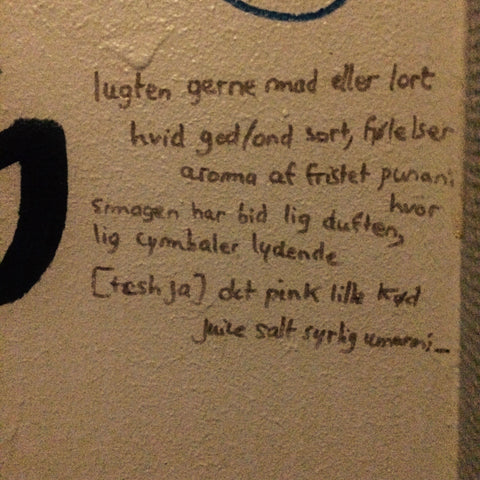 lugten gerne mad eller lort
hvid god/ond sort, følelser
aroma af fristet punani
hvor
smagen har bid lig duften,
lig cymbaler lydende
[tesh ja] det pink lille kød
juice salt syrlig umami_